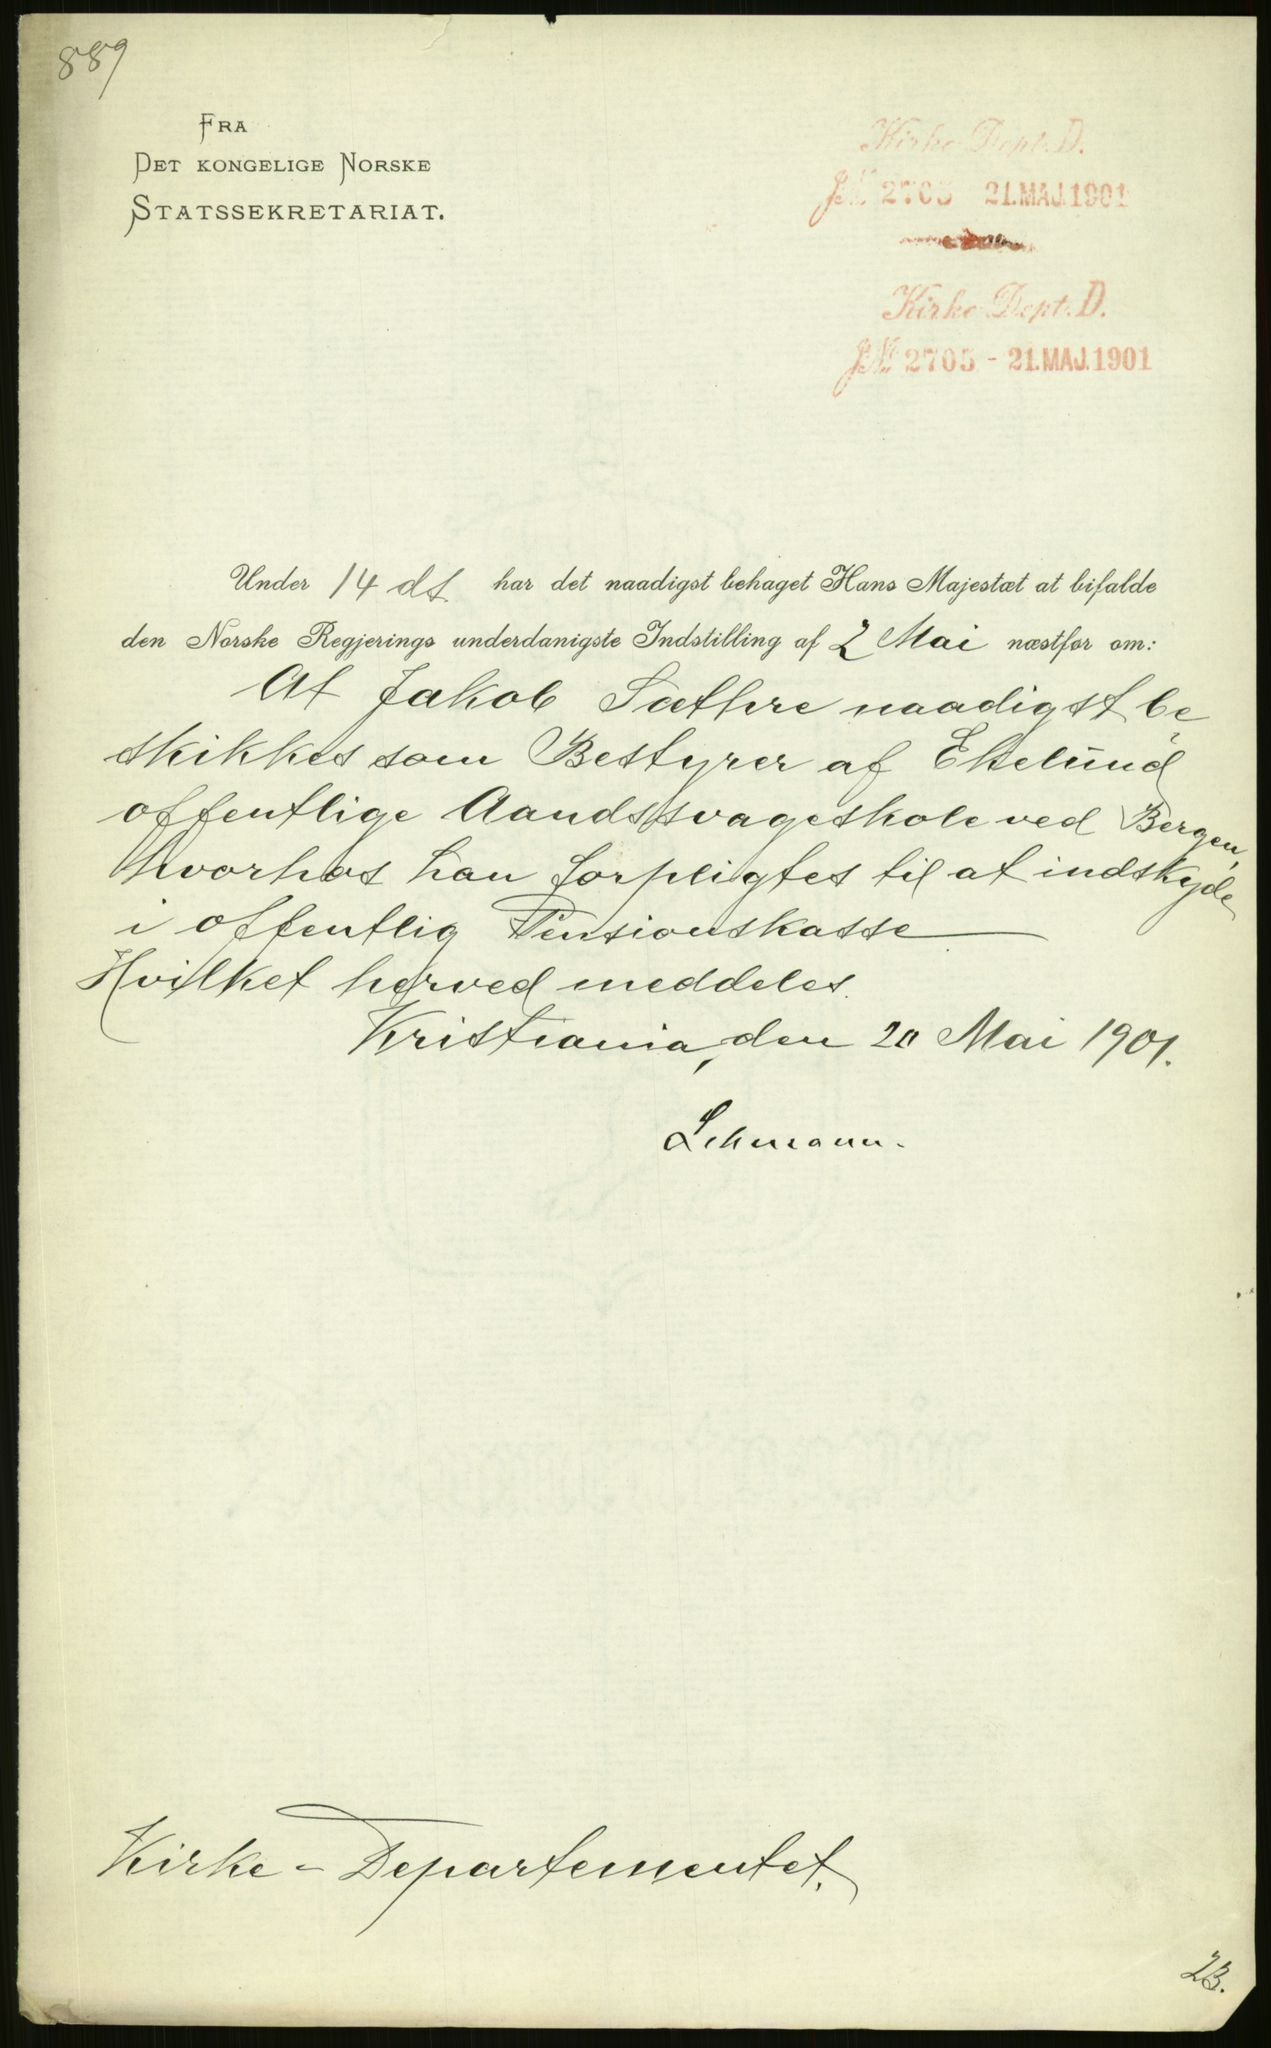 889
FRA
DET KONGELIGE NORSKE
STATSSEKRETARIAT.
Kirke-Dept. D.
J.№ 2705 21.MAJ.1901
Kirke-Dept. D.
J.№ 2705 - 21.MAJ.1901
Under 14 ds har det naadigst behaget Hans Majestæt at bifalde
den Norske Regjerings underdanigste Indstilling af 2 Mai næstfør om:
At Jakob Sæthre naadigst be
skikkes som Bestyrer af Ekelund
offentlige Aandssvageskole ved Bergen,
hvorhos han forpligtes til at indskyde
i offentlig Pensionskasse
Hvilket herved meddeles.
Kristiania, den 20 Mai 1901.
Lehmann.
Kirke-Departementet.
23.